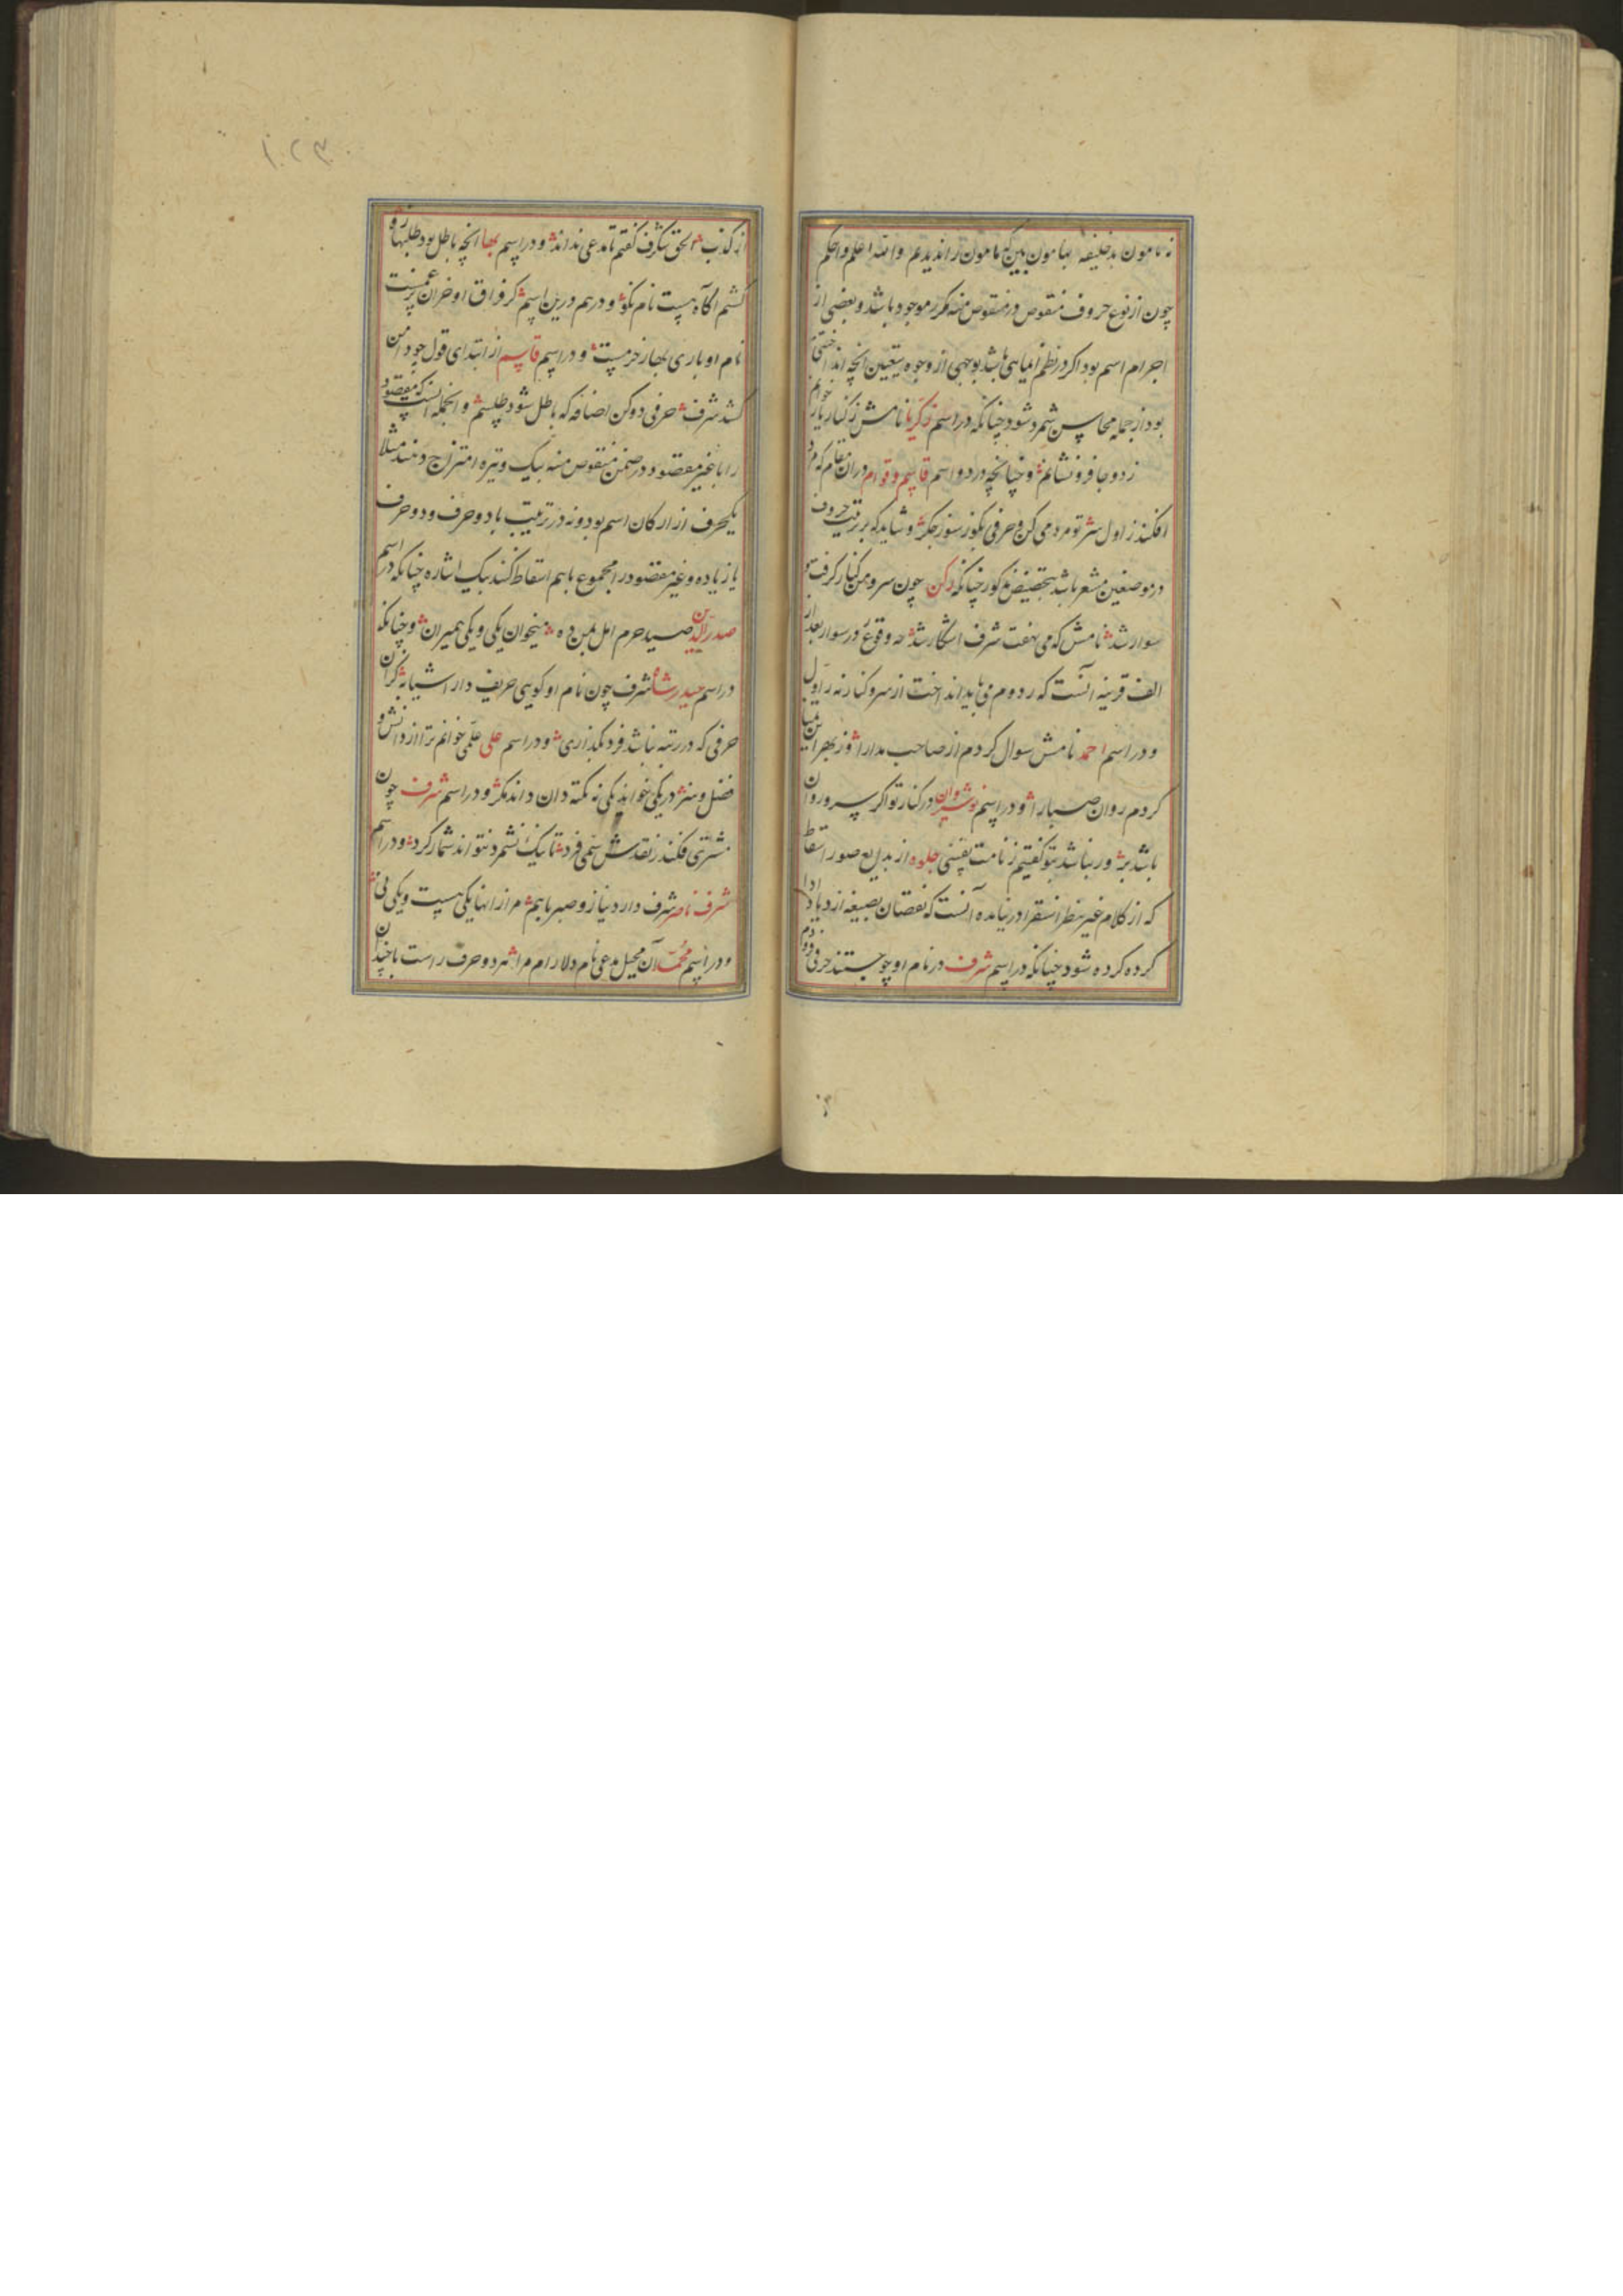 نه مامون بد خلیفه بهامون بین که مامون را ندیدم والله اعلم واحکم
چون از نوع حروف منقوص در منقوص منه مکرر موجود باشد و بعضی از
اجرام اسم بود اگر در نظم ایمایی باشد بوجهی از وجوه بتعیین انچه انداختنی
بود از جمله محاسن شمرده شود چنانکه در اسم زکریا نامش ز کنار یار خوانم
زد و جا فرو نشانم و چنانچه در دو اسم قاسم و قوام در ان مقام که مردم
افکند ز اول سر تو مردمی کن و حرفی بکوز سوز جگر و شاید که بر ترتیب حروف
در موضعین مشعر باشد بتخصیص مذکور چنانکه رکن چون سرو من کنار گرفت
سوار شد نامش که می نهفت شرف اشکار شد چه وقوع در سوار بعد از
الف قرینه آنست که ر دوم می باید انداخت از سر و کنار نه ر اول
و در اسم احمد نامش سوال کردم از صاحب مدارا و ز بهر این میان
کردم روان صبا را و در اسم نوشیروان در کنار تو اگر سرو روان
باشد به ور نباشد بتو گفتیم ز نامت نفسی جلوه از بدایع صور اسقاط
که از کلام غیر بنظر استقرا در نیامده آنست که نقصان بصیغه ازدیاد ادا
کرده کرده شود چنانکه در اسم شرف در نام او چو جستند حرفی
از کذب الحق شگرف گفتم تا مدعی نداند و در اسم بها انچه باطل بود طلبها رو
گشتم اگاه هست نام نکو و درهم درین اسم کز فراق او خزان
نام او باری بهار خرمست و در اسم قاسم از ابتدای قول چو دامن
کشد شرف حرفی دو کن اضافه که باطل شود طلسم و از جمله آنست که مقصود
را با غیر مقصود در ضمن منقوص منه بیک وتیره امتزاج دهند مثلا
یکحرف از ارکان اسم بود و نه در ترتیب با دو حرف و دو حرف
یا زیاده و غیر مقصود را مجموع باهم اسقاط کنند بیک اشاره چنانکه در اسم
صدرالدین صید حرم اهل بین ده میخوان یکی و یکی همیران و چنانکه
در اسم حیدر شاه شرف چون نام او گویی حریف دار اشیانه گران
حرفی که در رتبه نباشد فرد بگذاری و در اسم علی علمی خوانم ترا از دانش و
فضل و هنر دریکی خواند یکی نه نکته دان داند مگر و در اسم شرف چون
مشتری فکند ز نقدش سمی فرد تا یک نشمرد نتواند شمار کرد و در اسم
شرف ناصر شرف دارد نیاز و صبر باهم مر از انها یکی هست و یکی نی
و در اسم محمد آن محیل مدعی نام دلارام مرا شمرد و حرف راست با چندان